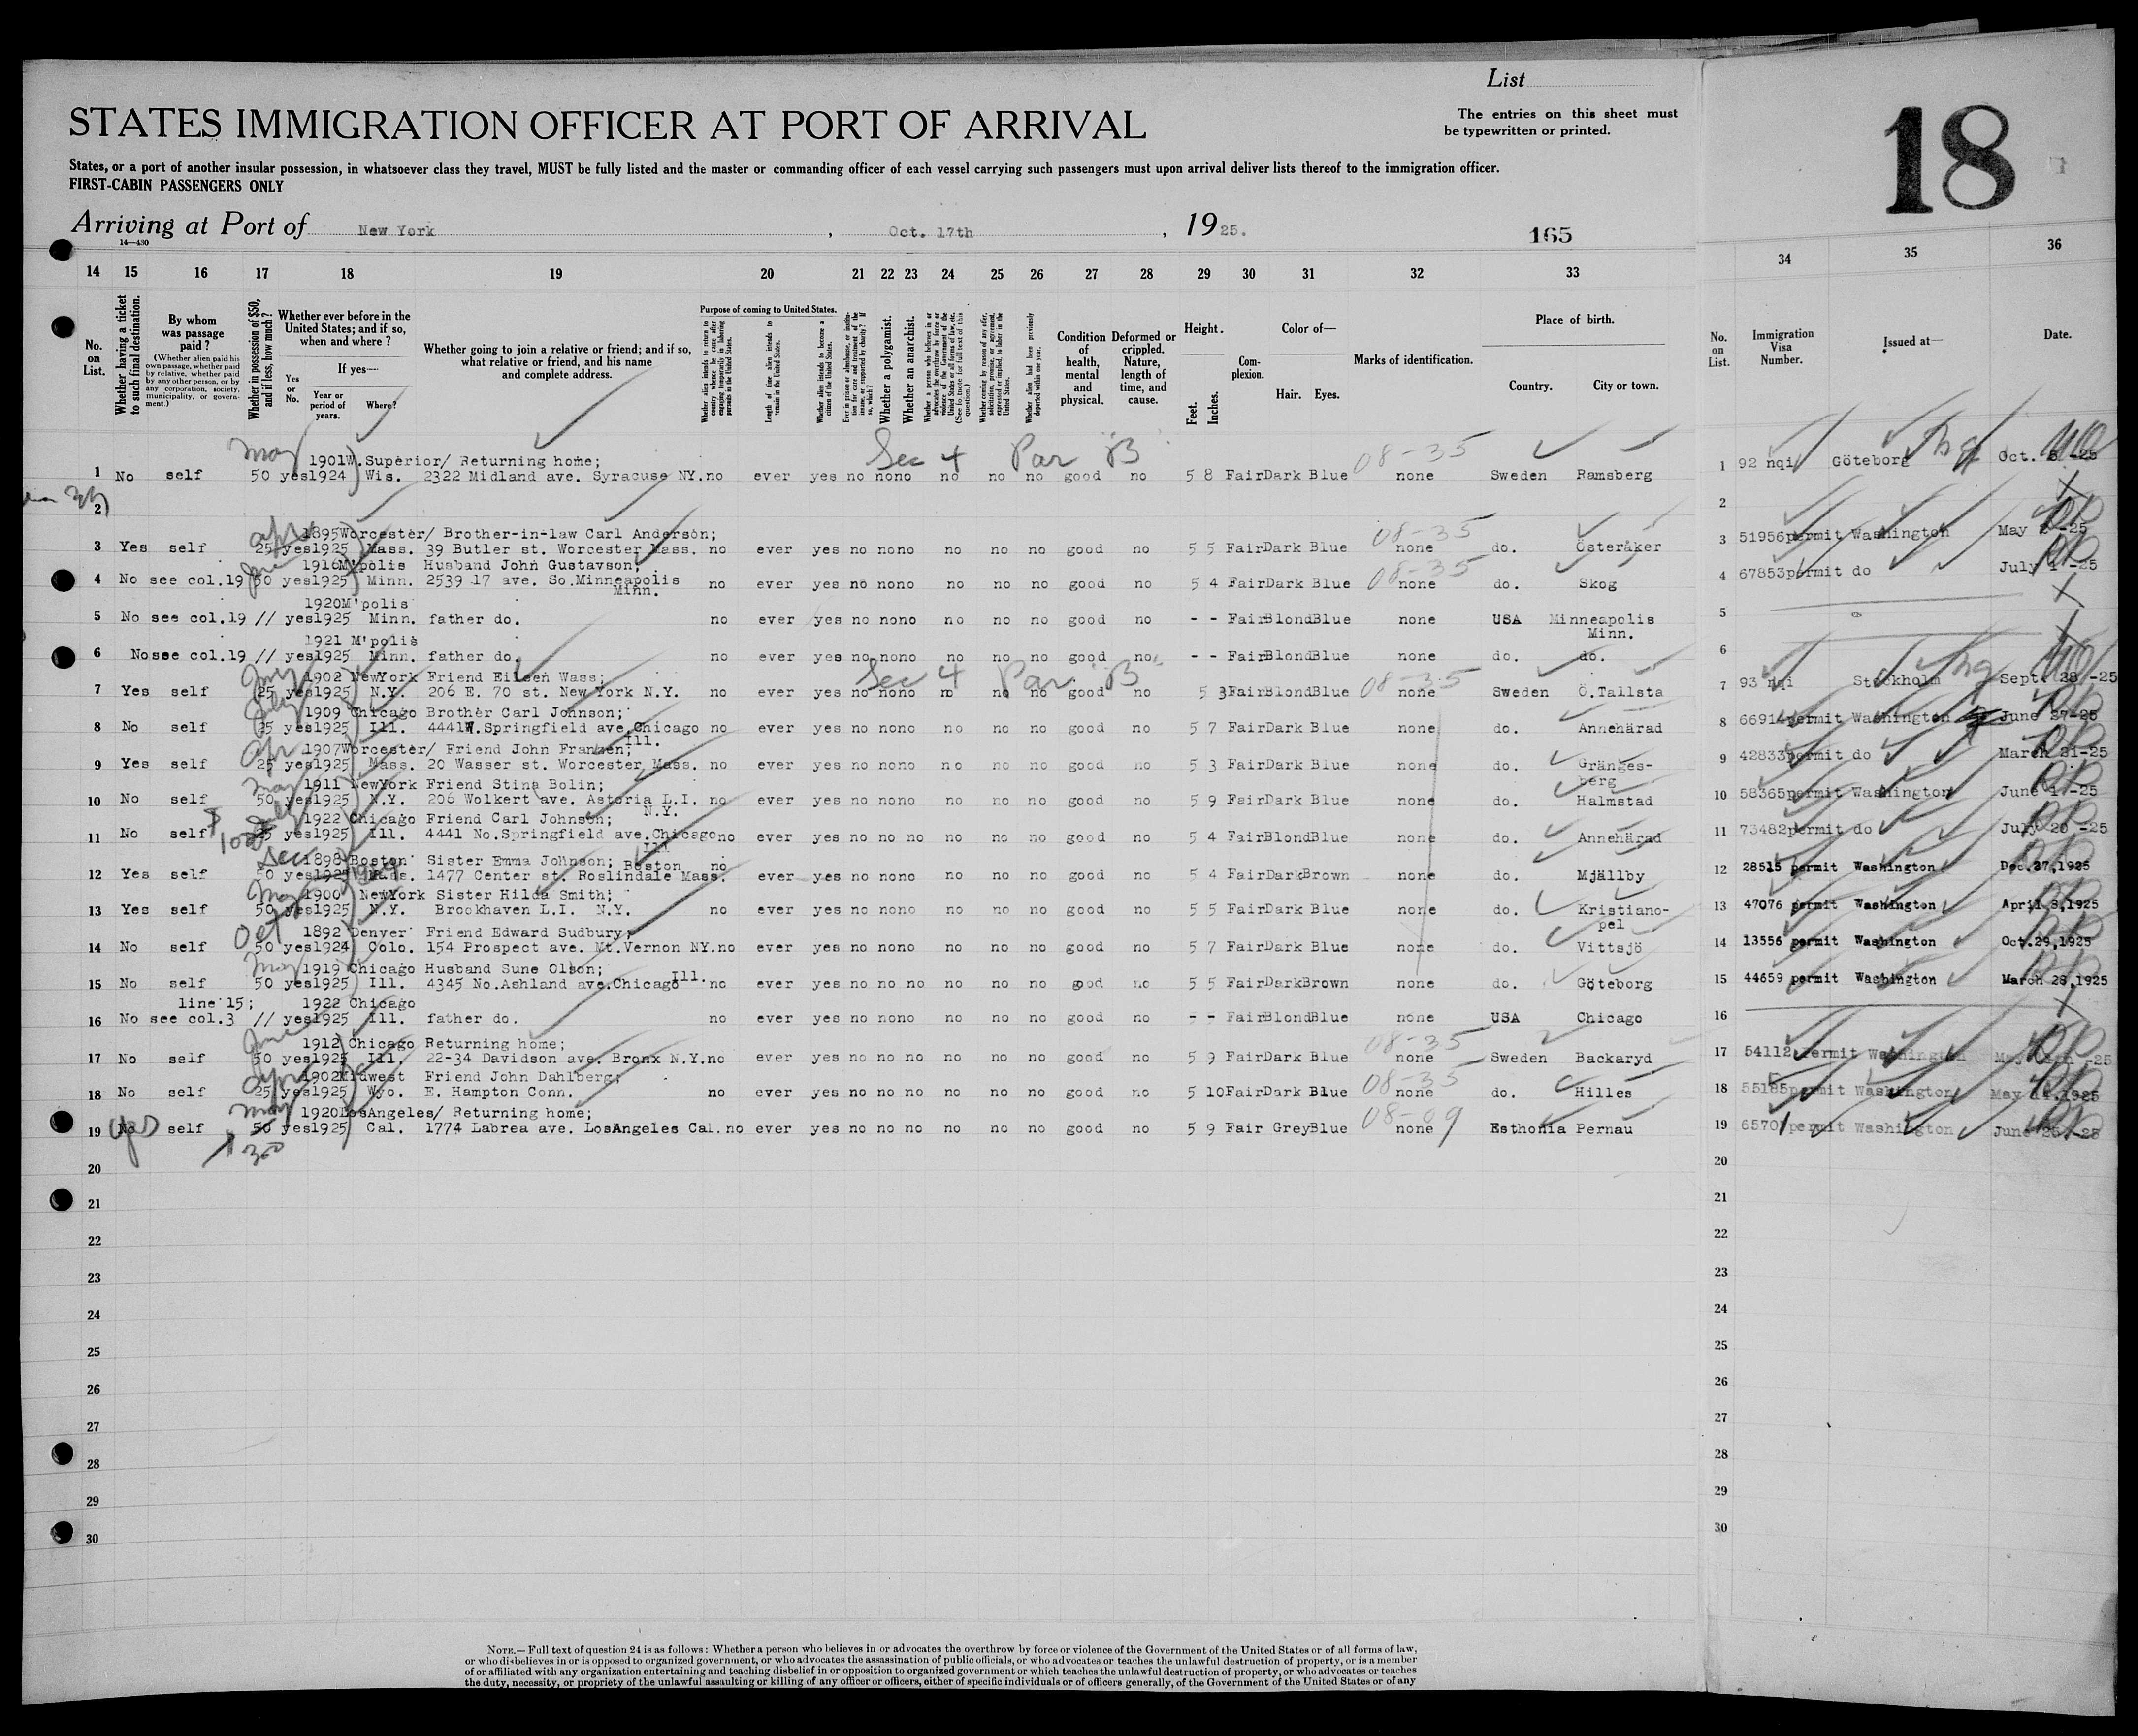 List
STATES IMMIGRATION OFFICER AT PORT OF ARRIVAL
The entries on this sheet must
be typewritten or printed.
18
States, or a port of another insular possession, in whatsoever class they travel, MUST be fully listed and the master or commanding officer of each vessel carrying such passengers must upon arrival deliver lists thereof to the immigration officer.
FIRST-CABIN PASSENGERS ONLY
Arriving at Port of New York , Oct. 17th , 1925.
14—430
165
14 15 16 17 18 19 20 21 22 23 24 25 26 27 28 29 30 31 32 33 34 35 36
No. on List.
Whether having a ticket to such final destination.
By whom was passage paid?
(Whether alien paid his own passage, whether paid by relative, whether paid by any other person, or by any corporation, society, municipality, or government.)
Whether in possession of $50, and if less, how much?
Whether ever before in the United States; and if so, when and where?
Yes or No.
If yes—
Year or period of years.
Where?
Whether going to join a relative or friend; and if so, what relative or friend, and his name and complete address.
Purpose of coming to United States.
Whether alien intends to return to country whence he came after engaging temporarily in laboring pursuits in the United States.
Length of time alien intends to remain in the United States.
Whether alien intends to become a citizen of the United States.
Ever in prison or almshouse, or institution for care and treatment of the insane, or supported by charity? If so, which?
Whether a polygamist.
Whether an anarchist.
Condition of health, mental and physical.
Deformed or crippled. Nature, length of time, and cause.
Height.
Feet. Inches.
Complexion.
Color of—
Hair. Eyes.
Marks of identification.
Place of birth.
Country. City or town.
No. on List.
Immigration Visa Number.
Issued at—
Date.
May 1901 W.Superior/ Returning home; Sec 4 Par B 08-35
1 No self 50 yes 1924) Wis. 2322 Midland ave. Syracuse NY. no ever yes no no no no no no good no 5 8 Fair Dark Blue none Sweden Ramsberg 1 92 nqi Göteborg Oct. 5 -25
2 2
1895 Worcester/ Brother-in-law Carl Anderson; 08-35
3 Yes self 25 yes 1925) Mass. 39 Butler st. Worcester Mass. no ever yes no no no no no no good no 5 5 Fair Dark Blue none do. Österåker 3 51956 permit Washington May -25
1916 M'polis Husband John Gustavson; 08-35
4 No see col.19 50 yes 1925) Minn. 2539 17 ave. So. Minneapolis Minn. no ever yes no no no no no no good no 5 4 Fair Dark Blue none do. Skog 4 67853 permit do July -25
1920 M'polis
5 No see col.19 // yes 1925 Minn. father do. no ever yes no no no no no no good no - - Fair Blond Blue none USA Minneapolis Minn. 5
1921 M'polis
6 No see col.19 // yes 1925 Minn. father do. no ever yes no no no no no no good no - - Fair Blond Blue none do. do. 6
1902 NewYork Friend Eileen Wass; Sec 4 Par B 08-35
7 Yes self 25 yes 1925) N.Y. 206 E. 70 st. New York N.Y. no ever yes no no no no no no good no 5 3 Fair Blond Blue none Sweden Ö.Tallsta 7 93 nqi Stockholm Sept. 28 -25
July 1909 Chicago Brother Carl Johnson;
8 No self 25 yes 1925) Ill. 4441 W.Springfield ave. Chicago Ill. no ever yes no no no no no no good no 5 7 Fair Dark Blue none do. Annehärad 8 66914 permit Washington June 27-25
Apr 1907 Worcester/ Friend John Franzen;
9 Yes self 25 yes 1925) Mass. 20 Wasser st. Worcester Mass. no ever yes no no no no no no good no 5 3 Fair Dark Blue none do. Grängesberg 9 42833 permit do March 21-25
May 1911 NewYork Friend Stina Bolin;
10 No self 50 yes 1925) N.Y. 206 Wolkert ave. Astoria L.I. N.Y. no ever yes no no no no no no good no 5 9 Fair Dark Blue none do. Halmstad 10 58365 permit Washington June 1 -25
1922 Chicago Friend Carl Johnson;
11 No self 25 yes 1925) Ill. 4441 No.Springfield ave. Chicago Ill no ever yes no no no no no no good no 5 4 Fair Blond Blue none do. Annehärad 11 73482 permit do July 20 -25
Dec 1898 Boston Sister Emma Johnson; Boston
12 Yes self 50 yes 1925 Mass. 1477 Center st. Roslindale Mass. no ever yes no no no no no no good no 5 4 Fair Dark Brown none do. Mjällby 12 28515 permit Washington Dec.27,1925
May 1900 NewYork Sister Hilda Smith;
13 Yes self 50 yes 1925) N.Y. Brookhaven L.I. N.Y. no ever yes no no no no no no good no 5 5 Fair Dark Blue none do. Kristianopel 13 47076 permit Washington April 8,1925
Oct 1892 Denver Friend Edward Sudbury;
14 No self 50 yes 1924) Colo. 154 Prospect ave. Mt.Vernon NY. no ever yes no no no no no no good no 5 7 Fair Dark Blue none do. Vittsjö 14 13556 permit Washington Oct.29,1925
May 1919 Chicago Husband Sune Olson;
15 No self 50 yes 1925) Ill. 4345 No.Ashland ave. Chicago Ill. no ever yes no no no no no no good no 5 5 Fair Dark Brown none do. Göteborg 15 44659 permit Washington March 28,1925
line 15; 1922 Chicago
16 No see col.3 // yes 1925 Ill. father do. no ever yes no no no no no no good no - - Fair Blond Blue none USA Chicago 16
June 1912 Chicago Returning home; 08-35
17 No self 50 yes 1925 Ill. 22-34 Davidson ave. Bronx N.Y. no ever yes no no no no no no good no 5 9 Fair Dark Blue none Sweden Backaryd 17 54112 permit Washington May -25
1902 Midwest Friend John Dahlberg; 08-35
18 No self 25 yes 1925) Wyo. E. Hampton Conn. no ever yes no no no no no no good no 5 10 Fair Dark Blue none do. Hilles 18 55185 permit Washington May 14,1925
May 1920 LosAngeles/ Returning home; 08-09
19 No yes self 50 yes 1925) Cal. 1774 Labrea ave. LosAngeles Cal. no ever yes no no no no no no good no 5 9 Fair Grey Blue none Esthonia Pernau 19 permit Washington June 26 -25
$ 300
20 20
21 21
22 22
23 23
24 24
25 25
26 26
27 27
28 28
29 29
30 30
NOTE.—Full text of question 24 is as follows: Whether a person who believes in or advocates the overthrow by force or violence of the Government of the United States or of all forms of law,
or who disbelieves in or is opposed to organized government, or who advocates the assassination of public officials, or who advocates or teaches the unlawful destruction of property, or is a member
of or affiliated with any organization entertaining and teaching disbelief in or opposition to organized government or which teaches the unlawful destruction of property, or who advocates or teaches
the duty, necessity, or propriety of the unlawful assaulting or killing of any officer or officers, either of specific individuals or of officers generally, of the Government of the United States or of any